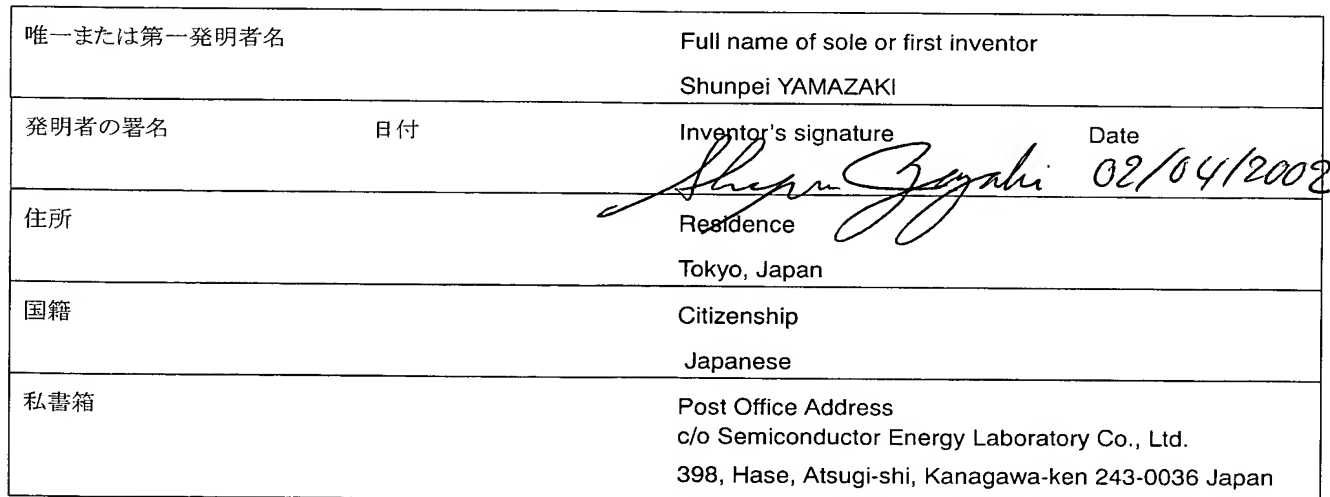 唯一または第一発明者名
Full name of sole or first inventor
Shunpei YAMAZAKI
発明者の署名 日付
Inventor's signature Date
02/04/2002
住所
Residence
Tokyo, Japan
国籍
Citizenship
Japanese
私書箱
Post Office Address
c/o Semiconductor Energy Laboratory Co., Ltd.
398, Hase, Atsugi-shi, Kanagawa-ken 243-0036 Japan